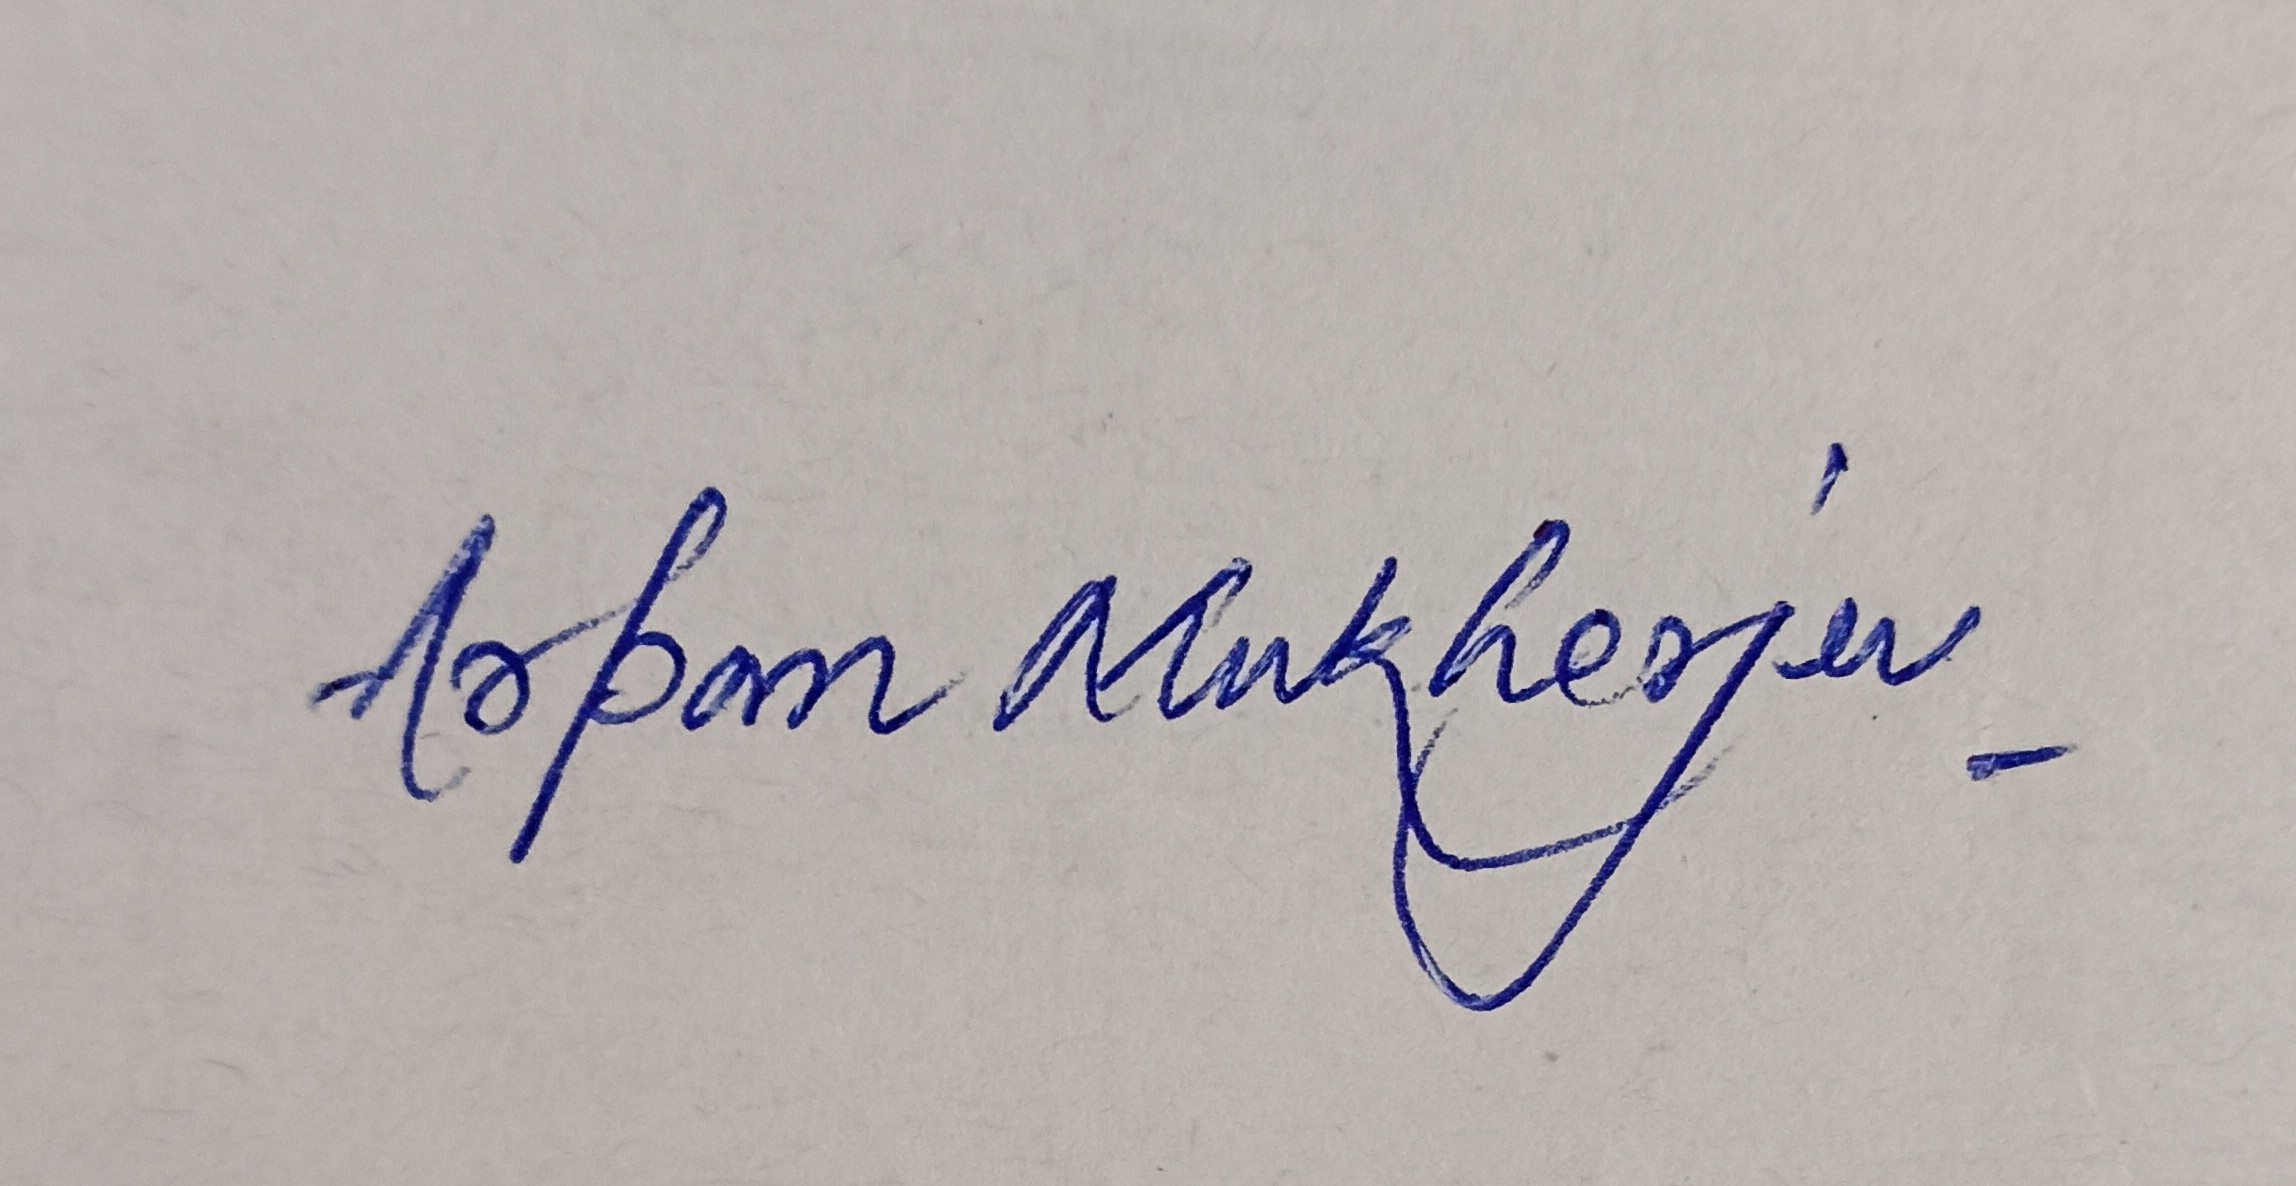 Arpan Mukherjee